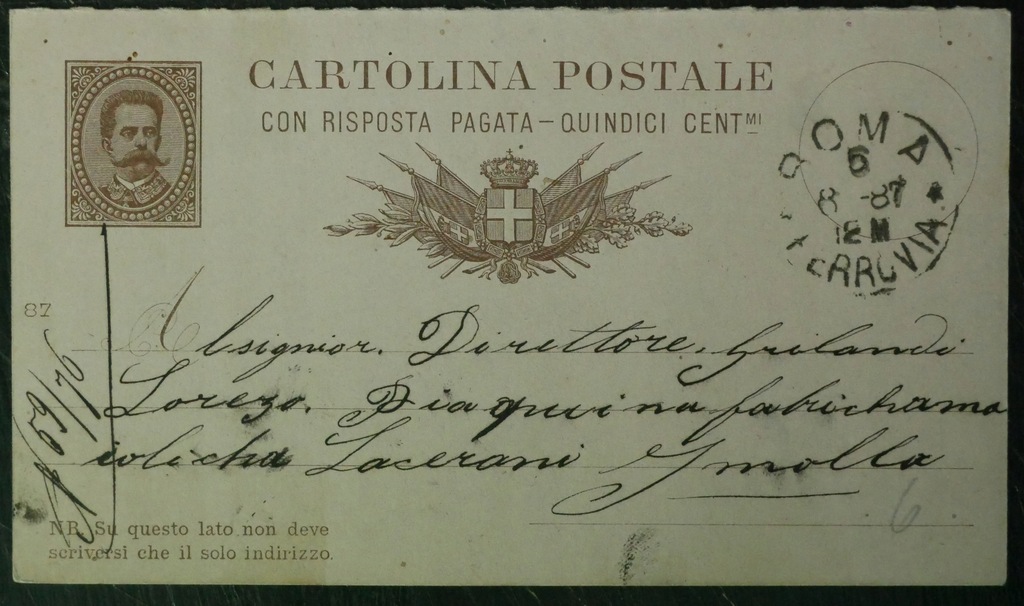 CARTOLINA POSTALE
CON RISPOSTA PAGATA – QUINDICI CENT MI
ROMA
6
8 - 87
12 M
FERROVIA
87
Al signior. Direttore. Grilandi
Lorezo. Dia qui
fabricha
Lacerani Ymolla
6
NB. Su questo lato non deve
scriversi che il solo indirizzo.